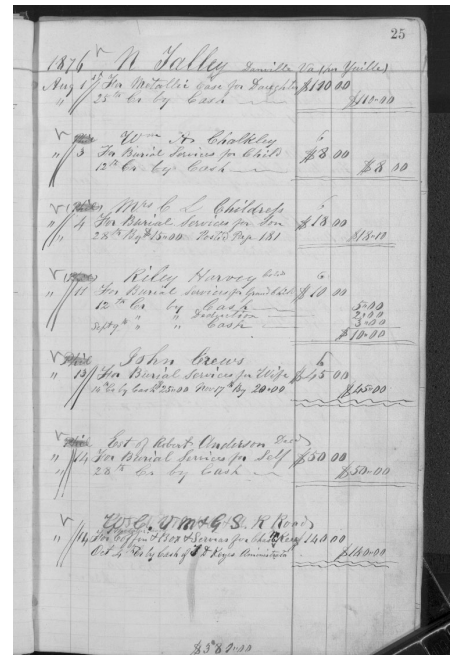 25
1876 N Talley Danville Va
Aug 1st For Metallic Case for Daughter $110 00
" 25th Cr by Cash $110-00
Wm A. Chalkley
" 5 For Burial Services for Child $8 00
12th Cr by Cash $8 00
Mrs C L Childress
" 4 For Burial Services for Son $18 00
" 28th By $18-00 Posted Page 181 $18-00
Riley Harvey
" 11 For Burial Services for Grand Child $10 00
12th Cr by Cash 5-00
" " Deduction 2-00
Sept 9th " " Cash 3-00
$10-00
John Crews
" 13 For Burial Services for Wife $45 00
Cr by Cash $25-00 Nov 17th By 20-00 $45-00
Est of Robert Anderson Decd
" 14 For Burial Services for Self $50 00
" 28th Cr by Cash $50-00
W. C. V. M & G S. R Road
" 14 For Coffin & Box & Services for $140 00
Oct 4th Cr by Cash of $140-00
$381-00